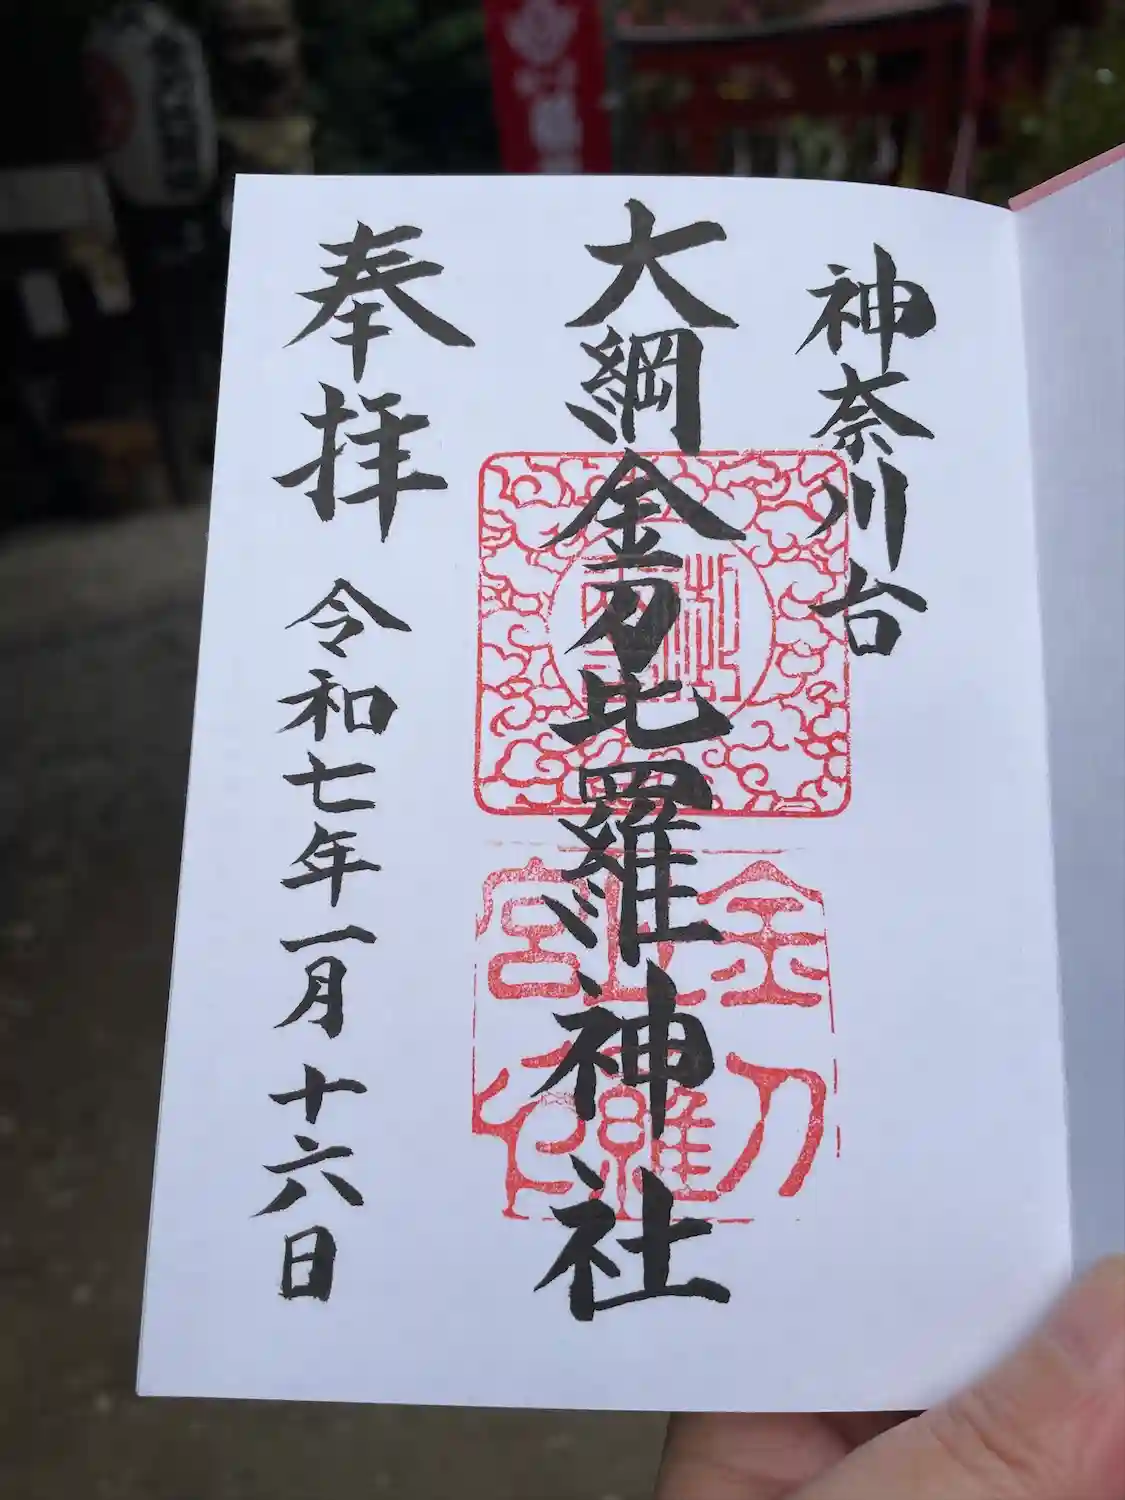 神奈川台
大綱金刀比羅神社
奉拝
令和七年一月十六日